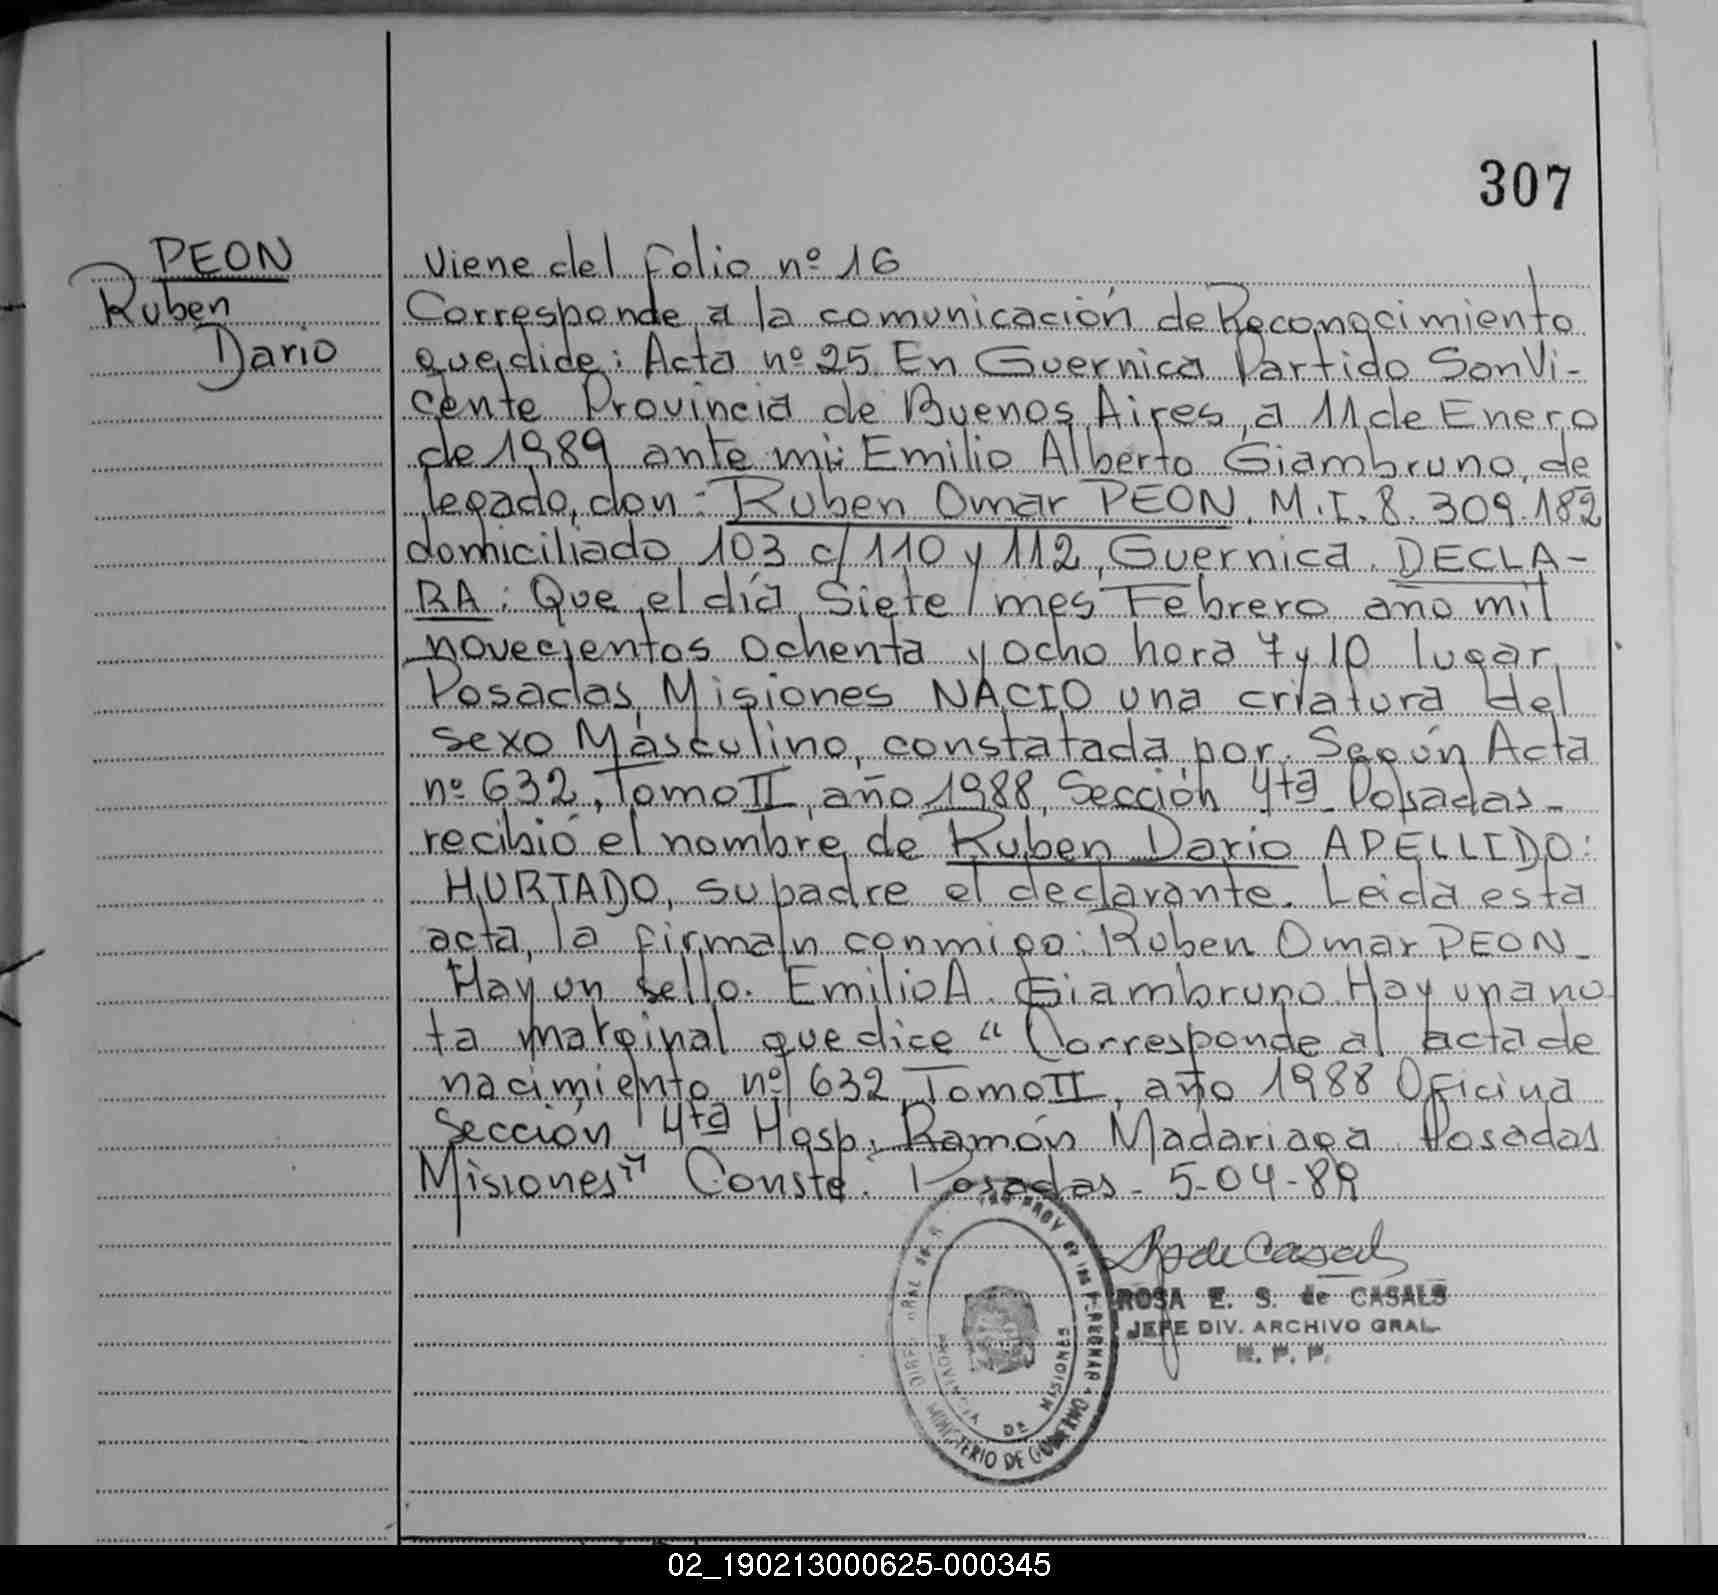 307
PEON
Ruben
Dario
Viene del folio nº 16
Corresponde a la comunicación de Reconocimiento
que dice: Acta nº 25 En Guernica Partido San Vi-
cente Provincia de Buenos Aires, a 11 de Enero
de 1989 ante mi: Emilio Alberto Giambruno, de
legado, don: Ruben Omar PEON. M.I. 8.309.182
domiciliado 103 c/ 110 y 112, Guernica. DECLA-
RA: Que el día Siete / mes Febrero año mil
novecientos ochenta y ocho hora 7 y 10 lugar
Posadas, Misiones NACIO una criatura del
sexo Masculino, constatada por. Según Acta
nº 632, Tomo II, año 1988, Sección 4ta Posadas-
recibió el nombre de Ruben Dario APELLIDO:
HURTADO, su padre el declarante. Leida esta
acta, la firma/n conmigo: Ruben Omar PEON-
Hay un sello. Emilio A. Giambruno. Hay una no
ta marginal que dice "Corresponde al acta de
nacimiento nº 632, Tomo II, año 1988 Oficina
Sección 4ta Hosp. Ramón Madariaga Posadas
Misiones" Conste. Posadas - 5-04-89
R de Casals
ROSA E. S. de CASALS
JEFE DIV. ARCHIVO GRAL.
R. P. P.
PROVINCIA DE MISIONES
MINISTERIO DE GOBIERNO
02_190213000625-000345